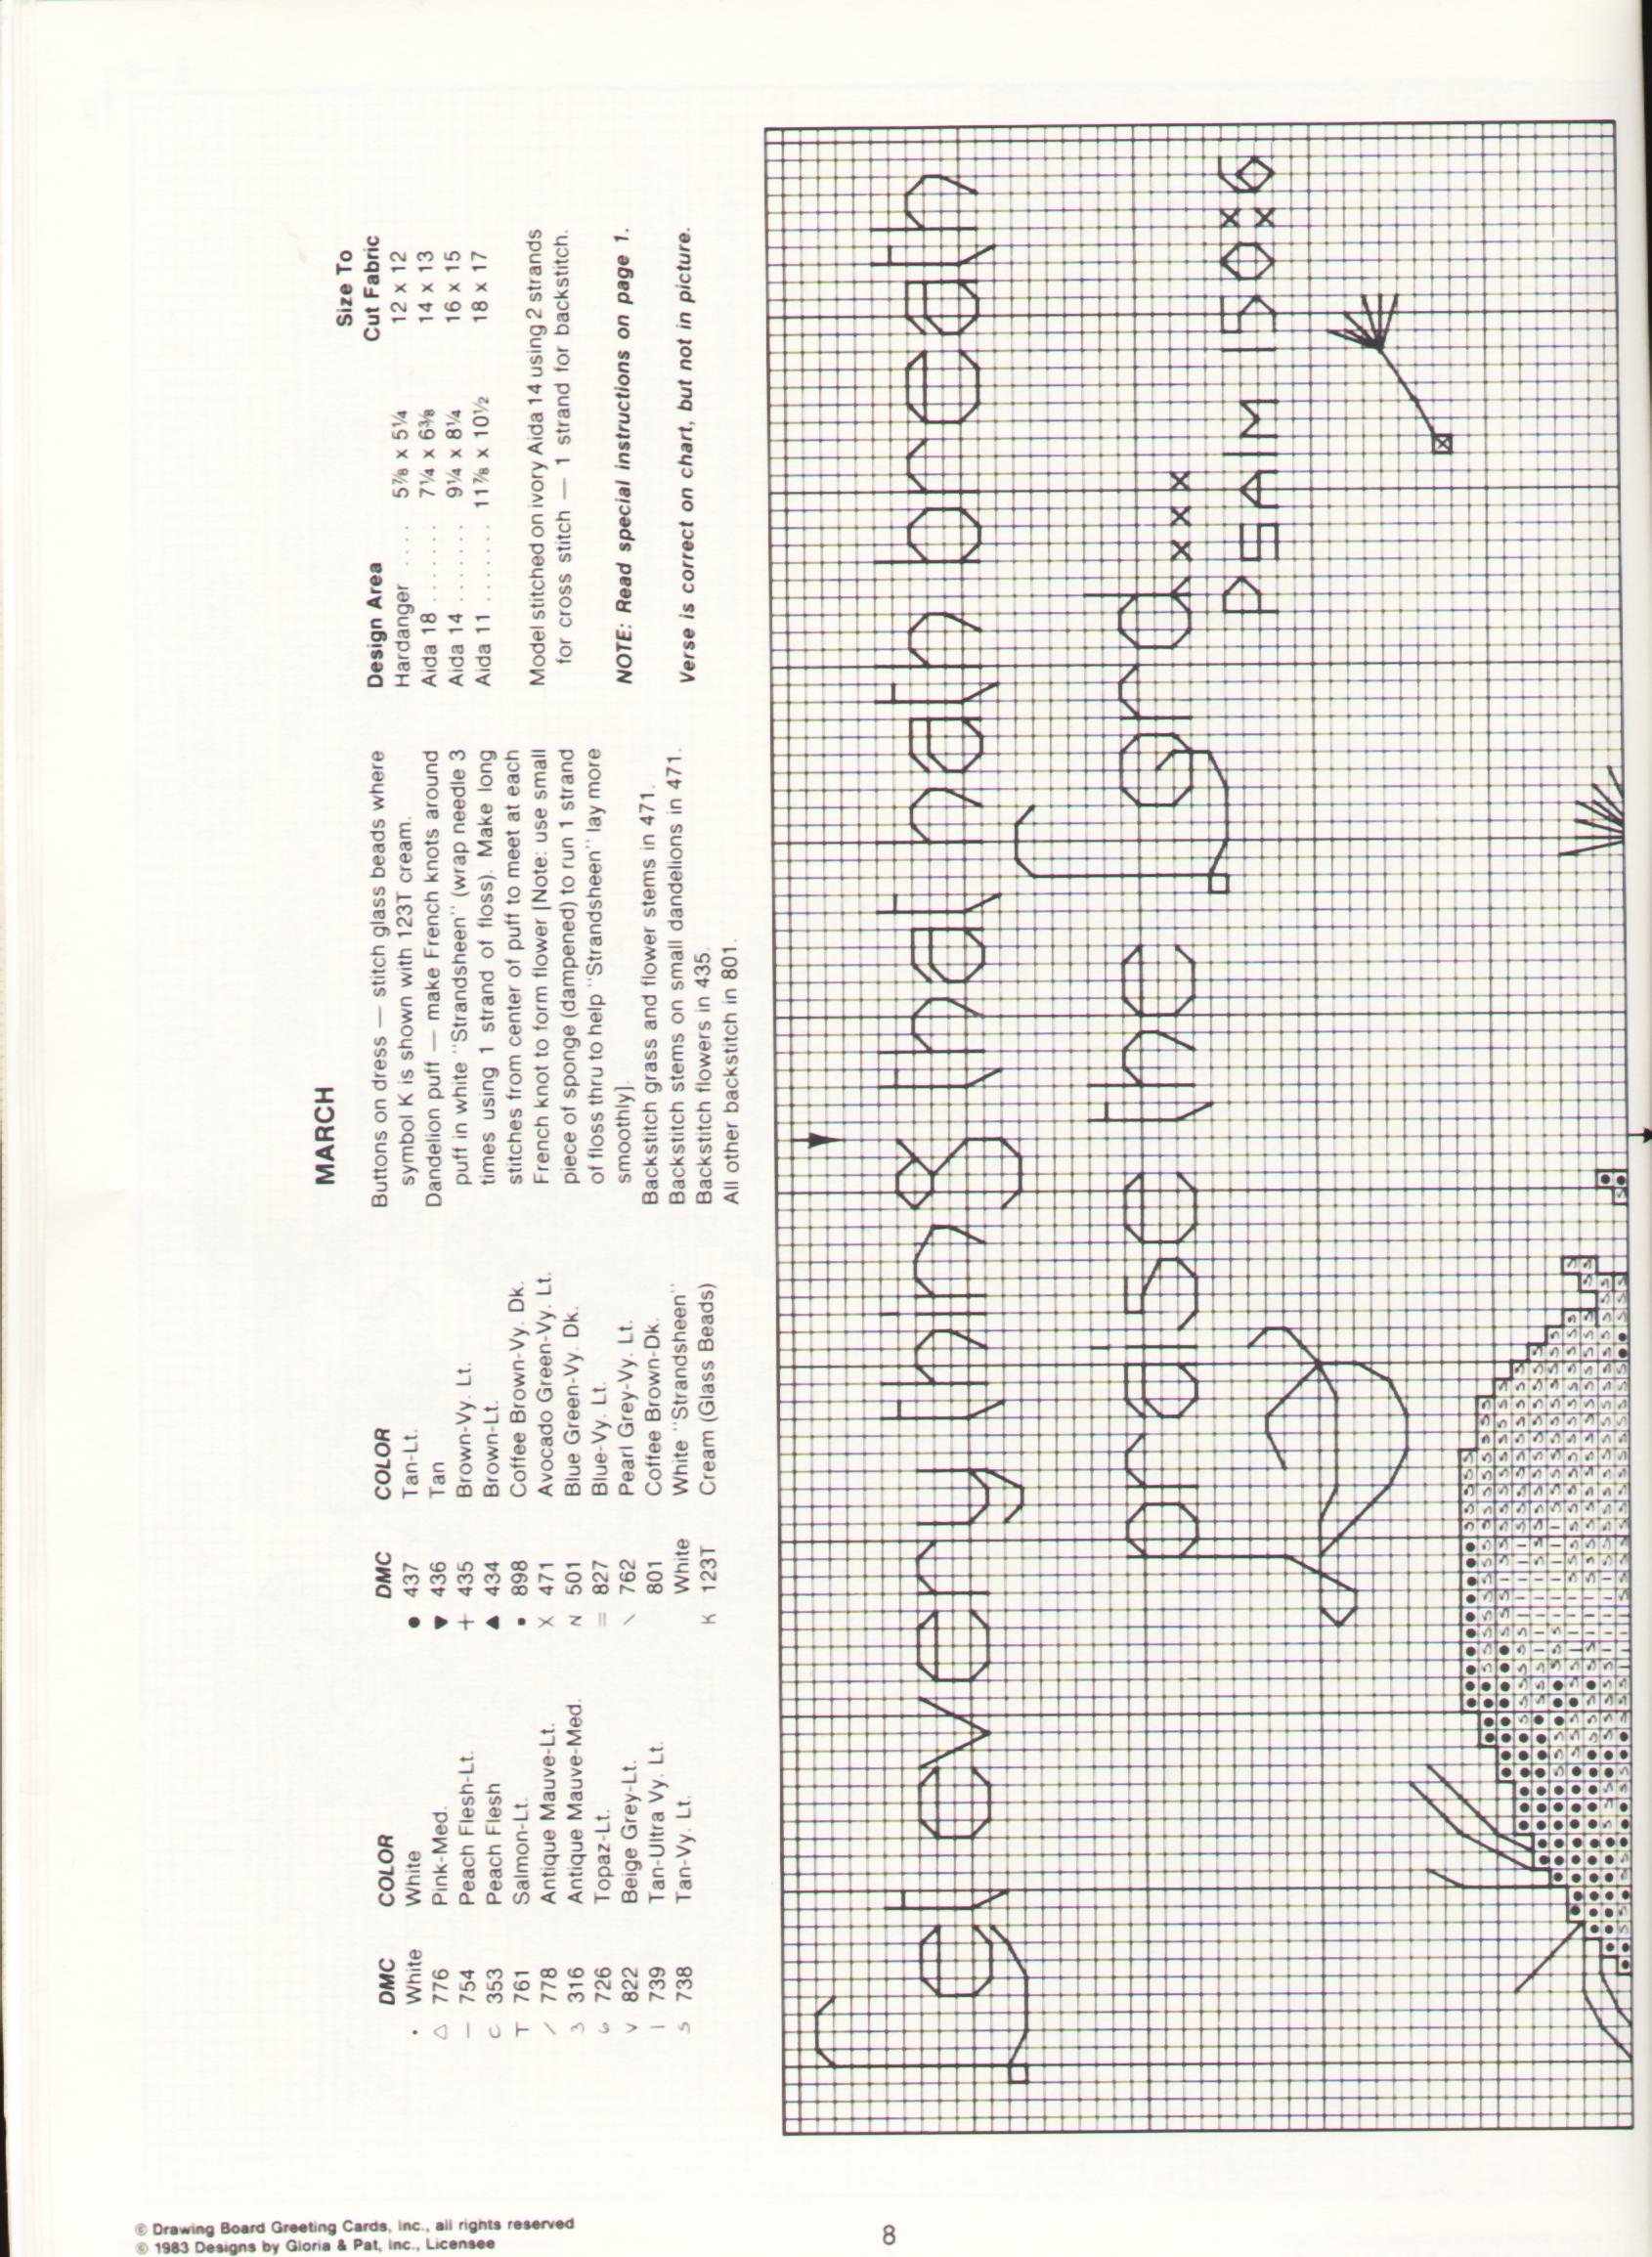 MARCH
DMC COLOR
· White White
△ 776 Pink-Med.
— 754 Peach Flesh-Lt.
C 353 Peach Flesh
T 761 Salmon-Lt.
/ 778 Antique Mauve-Lt.
3 316 Antique Mauve-Med.
6 726 Topaz-Lt.
V 822 Beige Grey-Lt.
I 739 Tan-Ultra Vy. Lt.
S 738 Tan-Vy. Lt.
DMC COLOR
● 437 Tan-Lt.
▼ 436 Tan
+ 435 Brown-Vy. Lt.
▲ 434 Brown-Lt.
▪ 898 Coffee Brown-Vy. Dk.
X 471 Avocado Green-Vy. Lt.
N 501 Blue Green-Vy. Dk.
= 827 Blue-Vy. Lt.
\ 762 Pearl Grey-Vy. Lt.
801 Coffee Brown-Dk.
White White "Strandsheen"
K 123T Cream (Glass Beads)
Buttons on dress — stitch glass beads where
symbol K is shown with 123T cream.
Dandelion puff — make French knots around
puff in white "Strandsheen" (wrap needle 3
times using 1 strand of floss). Make long
stitches from center of puff to meet at each
French knot to form flower [Note: use small
piece of sponge (dampened) to run 1 strand
of floss thru to help "Strandsheen" lay more
smoothly].
Backstitch grass and flower stems in 471.
Backstitch stems on small dandelions in 471.
Backstitch flowers in 435.
All other backstitch in 801.
Design Area Size To Cut Fabric
Hardanger .... 5⅞ x 5¼ 12 x 12
Aida 18 ........ 7¼ x 6⅜ 14 x 13
Aida 14 ....... 9¼ x 8¼ 16 x 15
Aida 11 ....... 11⅞ x 10½ 18 x 17
Model stitched on ivory Aida 14 using 2 strands
for cross stitch — 1 strand for backstitch.
NOTE: Read special instructions on page 1.
Verse is correct on chart, but not in picture.
Let everything that hath breath
praise the Lord xxx
Psalm 150:6
© Drawing Board Greeting Cards, Inc., all rights reserved
© 1983 Designs by Gloria & Pat, Inc., Licensee
8